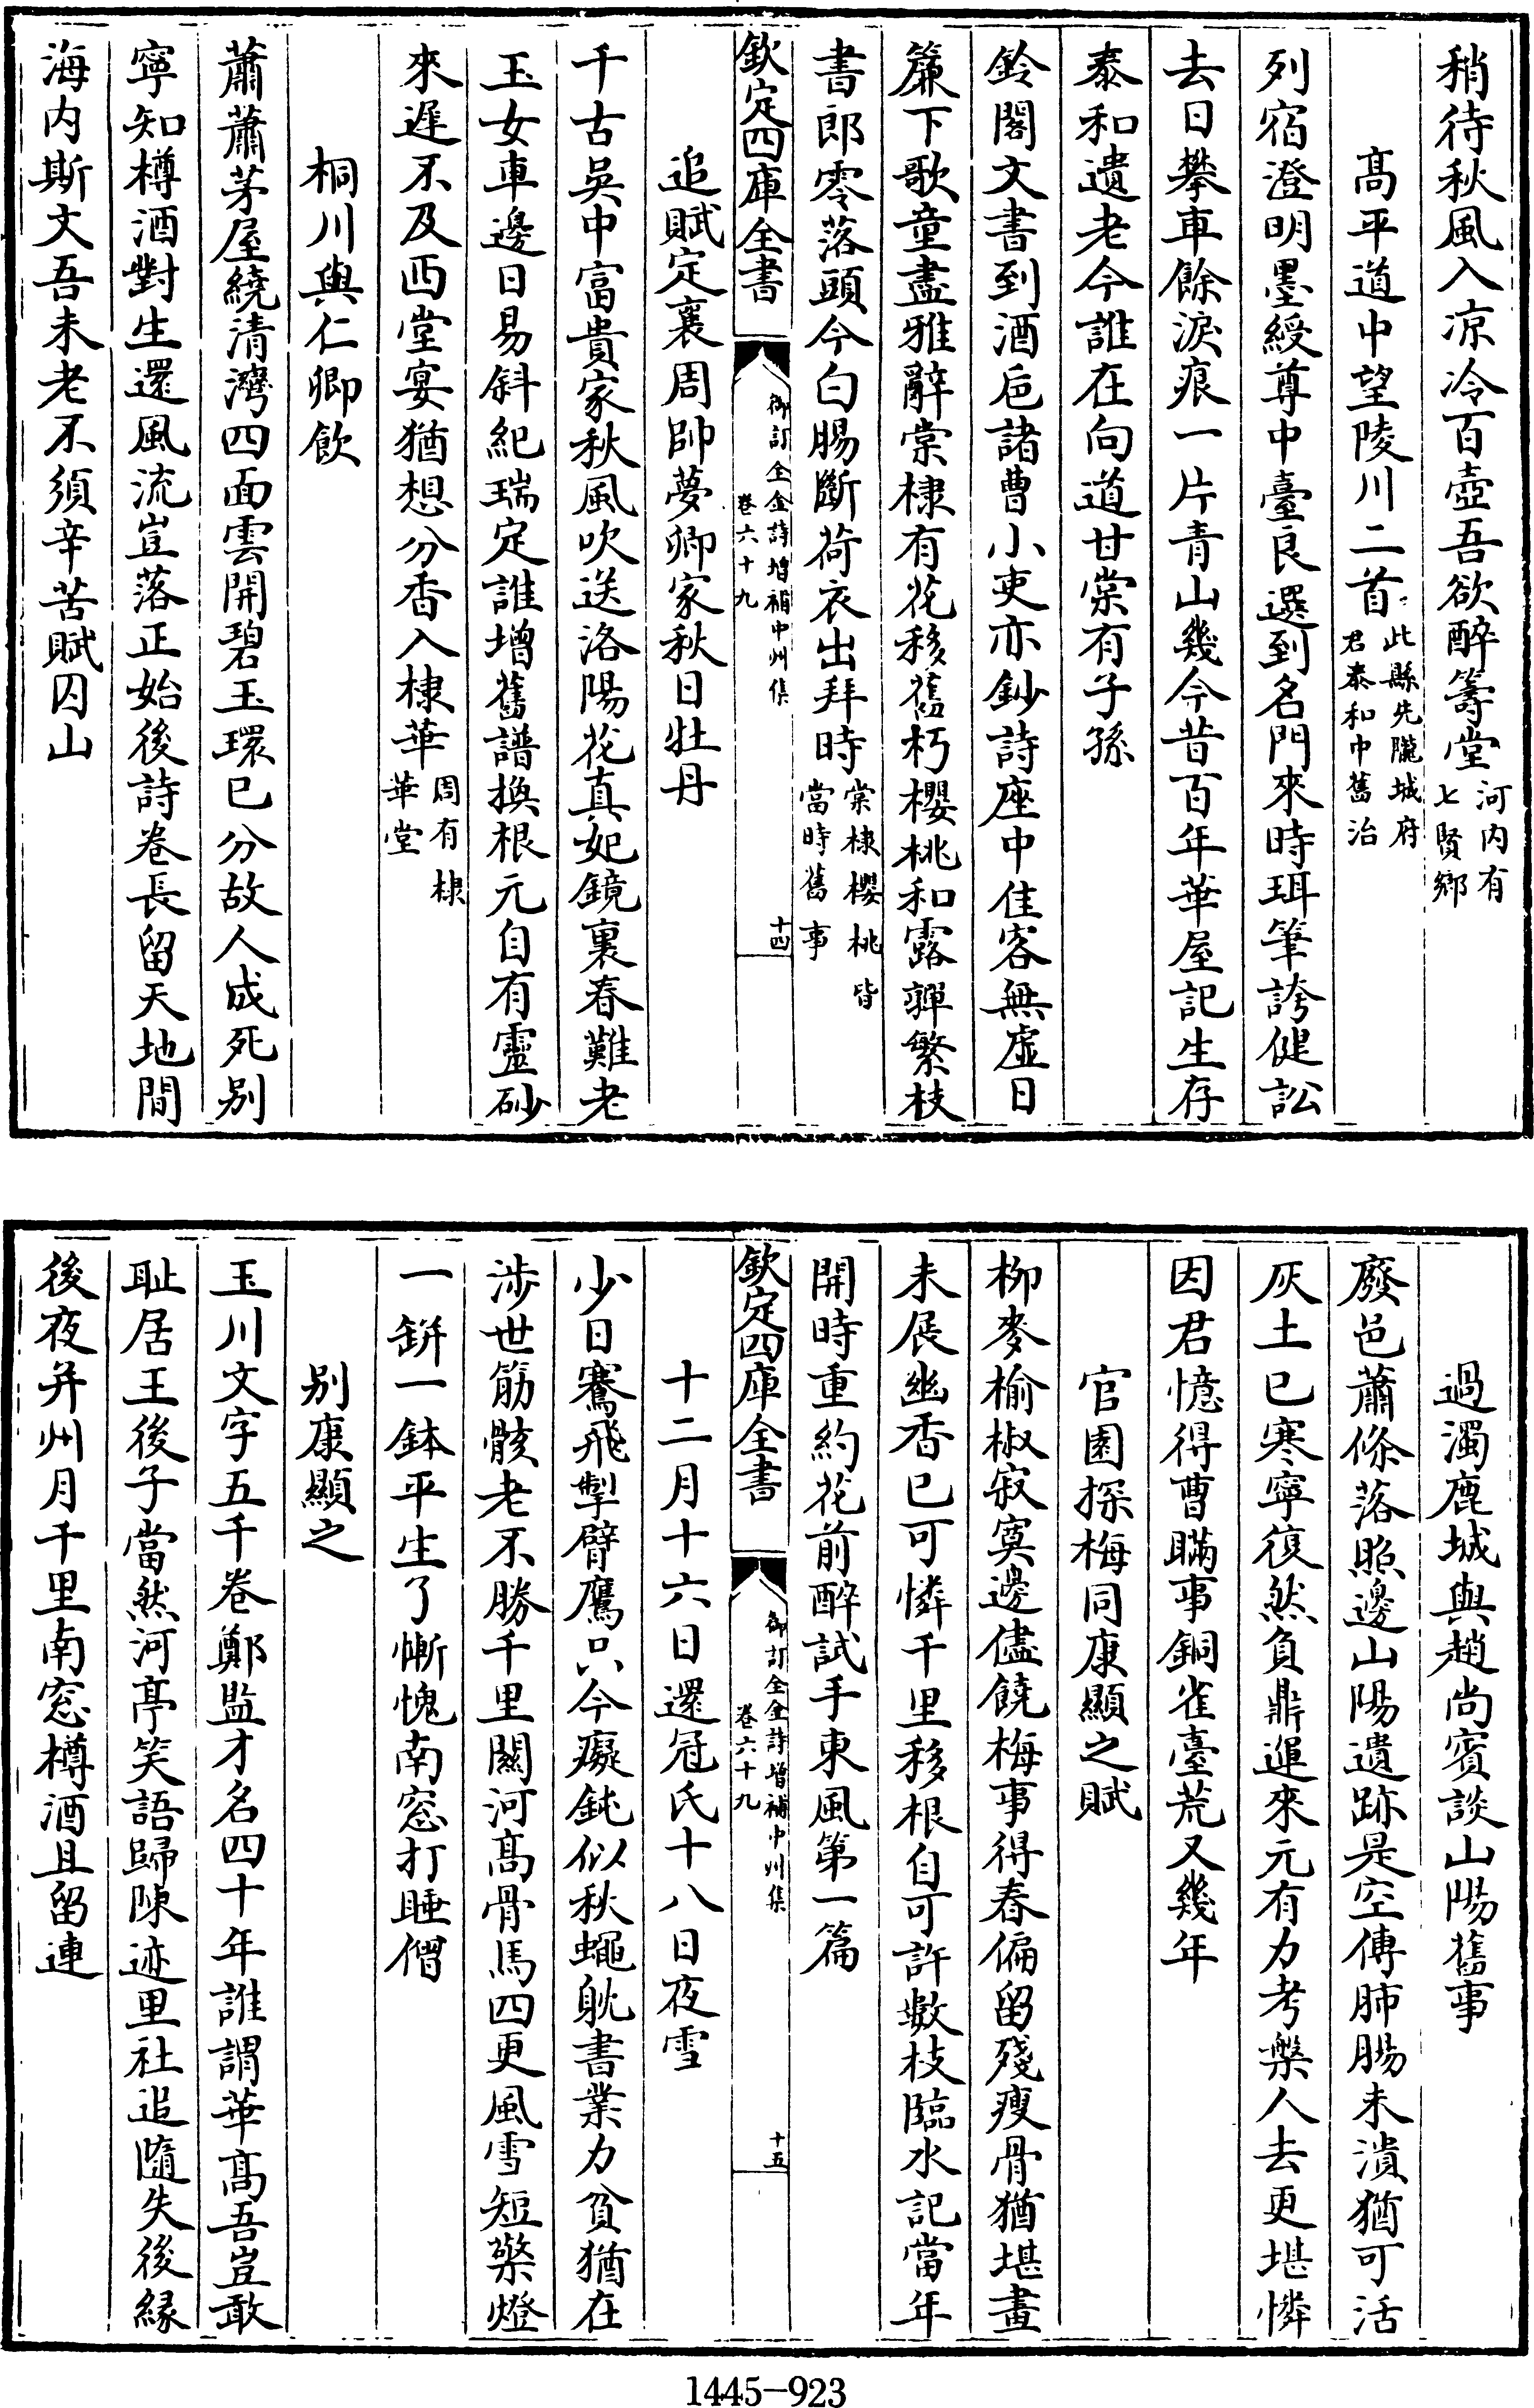 稍待秋風入凉冷百壺吾欲醉籌堂河内有七賢鄉
高平道中望陵川二首此縣先隴城府君泰和中舊治
列宿澄明墨綬尊中臺良選到名門來時珥筆誇健訟
去日攀車餘淚痕一片青山幾今昔百年華屋記生存
泰和遺老今誰在向道甘棠有子孫
鈴閣文書到酒巵諸曹小吏亦鈔詩座中佳客無虛日
簾下歌童盡雅辭棠棣有花移舊朽櫻桃和露嚲繁枝
書郎零落頭今白腸斷荷衣出拜時棠棣櫻桃皆當時舊事
欽定四庫全書
御訂全金詩增補中州集
卷六十九
十四
追賦定襄周帥夢卿家秋日牡丹
千古吳中富貴家秋風吹送洛陽花真妃鏡裏春難老
玉女車邊日易斜紀瑞定誰增舊譜換根元自有靈砂
來遲不及西堂宴猶想分香入棣華周有棣華堂
桐川與仁卿飲
蕭蕭茅屋繞清灣四面雲開碧玉環已分故人成死别
寧知樽酒對生還風流豈落正始後詩卷長留天地間
海内斯文吾未老不須辛苦賦囚山
過濁鹿城與趙尚賓談山陽舊事
廢邑蕭條落照邊山陽遺跡是空傳肺腸未潰猶可活
灰土已寒寧復然負鼎運來元有力考槃人去更堪憐
因君憶得曹瞞事銅雀臺荒又幾年
官園探梅同康顯之賦
柳麥榆椒寂寞邊儘饒梅事得春偏留殘瘦骨猶堪畫
未展幽香已可憐千里移根自可許數枝臨水記當年
開時重約花前醉試手東風第一篇
欽定四庫全書
御訂全金詩增補中州集
卷六十九
十五
十二月十六日還冠氏十八日夜雪
少日騫飛掣臂鷹只今癡鈍似秋蠅躭書業力貧猶在
涉世筋骸老不勝千里關河高骨馬四更風雪短檠燈
一缾一鉢平生了慚愧南窓打睡僧
别康顯之
玉川文字五千卷鄭監才名四十年誰謂華高吾豈敢
耻居王後子當然河亭笑語歸陳迹里社追隨失後緣
後夜并州月千里南窓樽酒且留連
1445-923